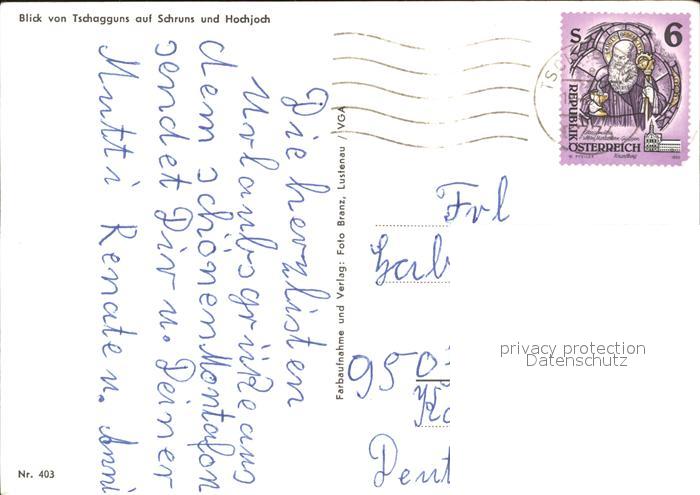 Blick von Tschagguns auf Schruns und Hochjoch
Die herzlisten
Urlaubsgrüße aus
dem schönen Montafon
sendet Dir u. Deiner
Mutti Renate u. Anni
Farbaufnahme und Verlag: Foto Branz, Lustenau / VGA
S 6
REPUBLIK
ÖSTERREICH
TSC
Frl
Gab
950
Ko
Deut
privacy protection
Datenschutz
Nr. 403